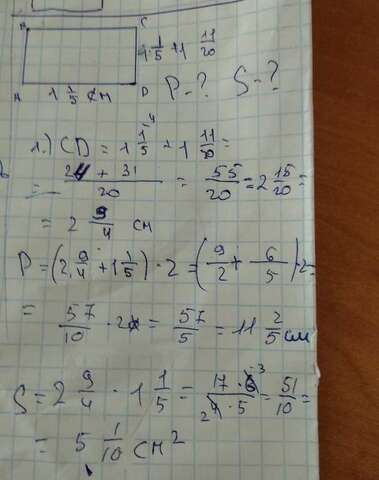 B C
1 1/5 + 1 11/20
A 1 1/5 см D P-? S-?
1.) CD = 1 1/5 + 1 11/20 =
= 24 + 31 / 20 = 55/20 = 2 15/20 =
= 2 9/4 см
P = (2 9/4 + 1 1/5) · 2 = (9/2 + 6/5) · 2 =
= 57/10 · 2 = 57/5 = 11 2/5 см
S = 2 9/4 · 1 1/5 = 17 · 6 3 / 2 4 · 5 = 51/10 =
= 5 1/10 см²